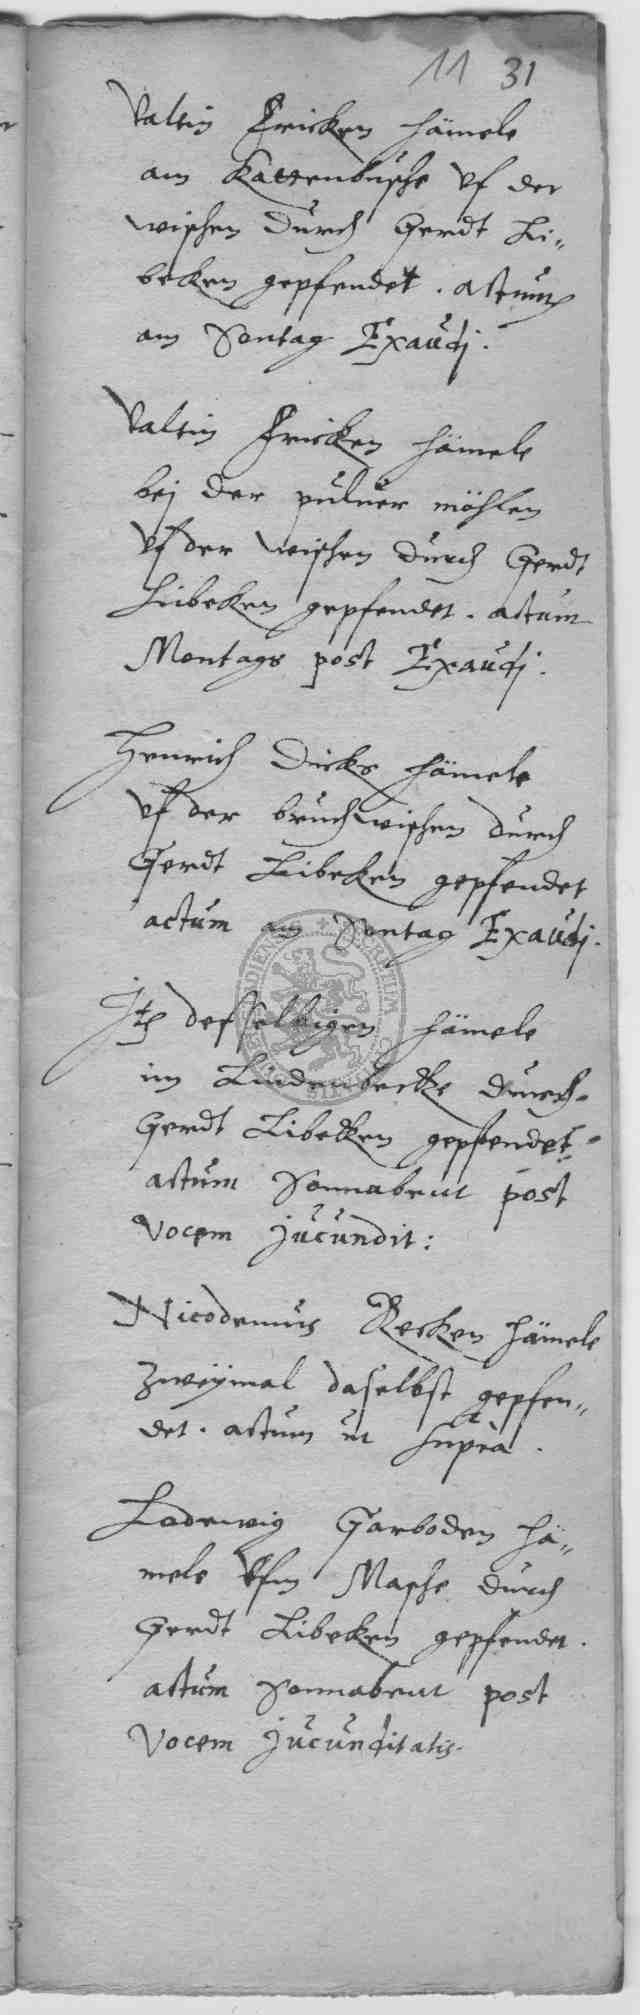 11 31
Valtin Fricken hämele
am Kattenbusche vf der
wischen durch Gerdt Li„
beken gepfendet. actum
am Sontag Exaudj.
Valtin Fricken hämele
bej der puluer möhlen
vf der wischen durch Gerdt
Libeken gepfendet. actum
Montags post Exaudj.
Henrich Dicks hämele
vf der bruchwischen durch
Gerdt Libeken gepfendet
actum am Sontag Exaudj.
Jtem desselbigen hämele
im Lindenbecke durch
Gerdt Libecken gepfendet
actum Sonnabent post
Vocem jucundit:
Nicodemus Recken hämele
zweymal daselbst gepfen„
det. actum ut supra.
Lodewig Garboden hä„
mele vfm Masche durch
Gerdt Libeken gepfendet.
actum Sonnabent post
Vocem jucunditatis.